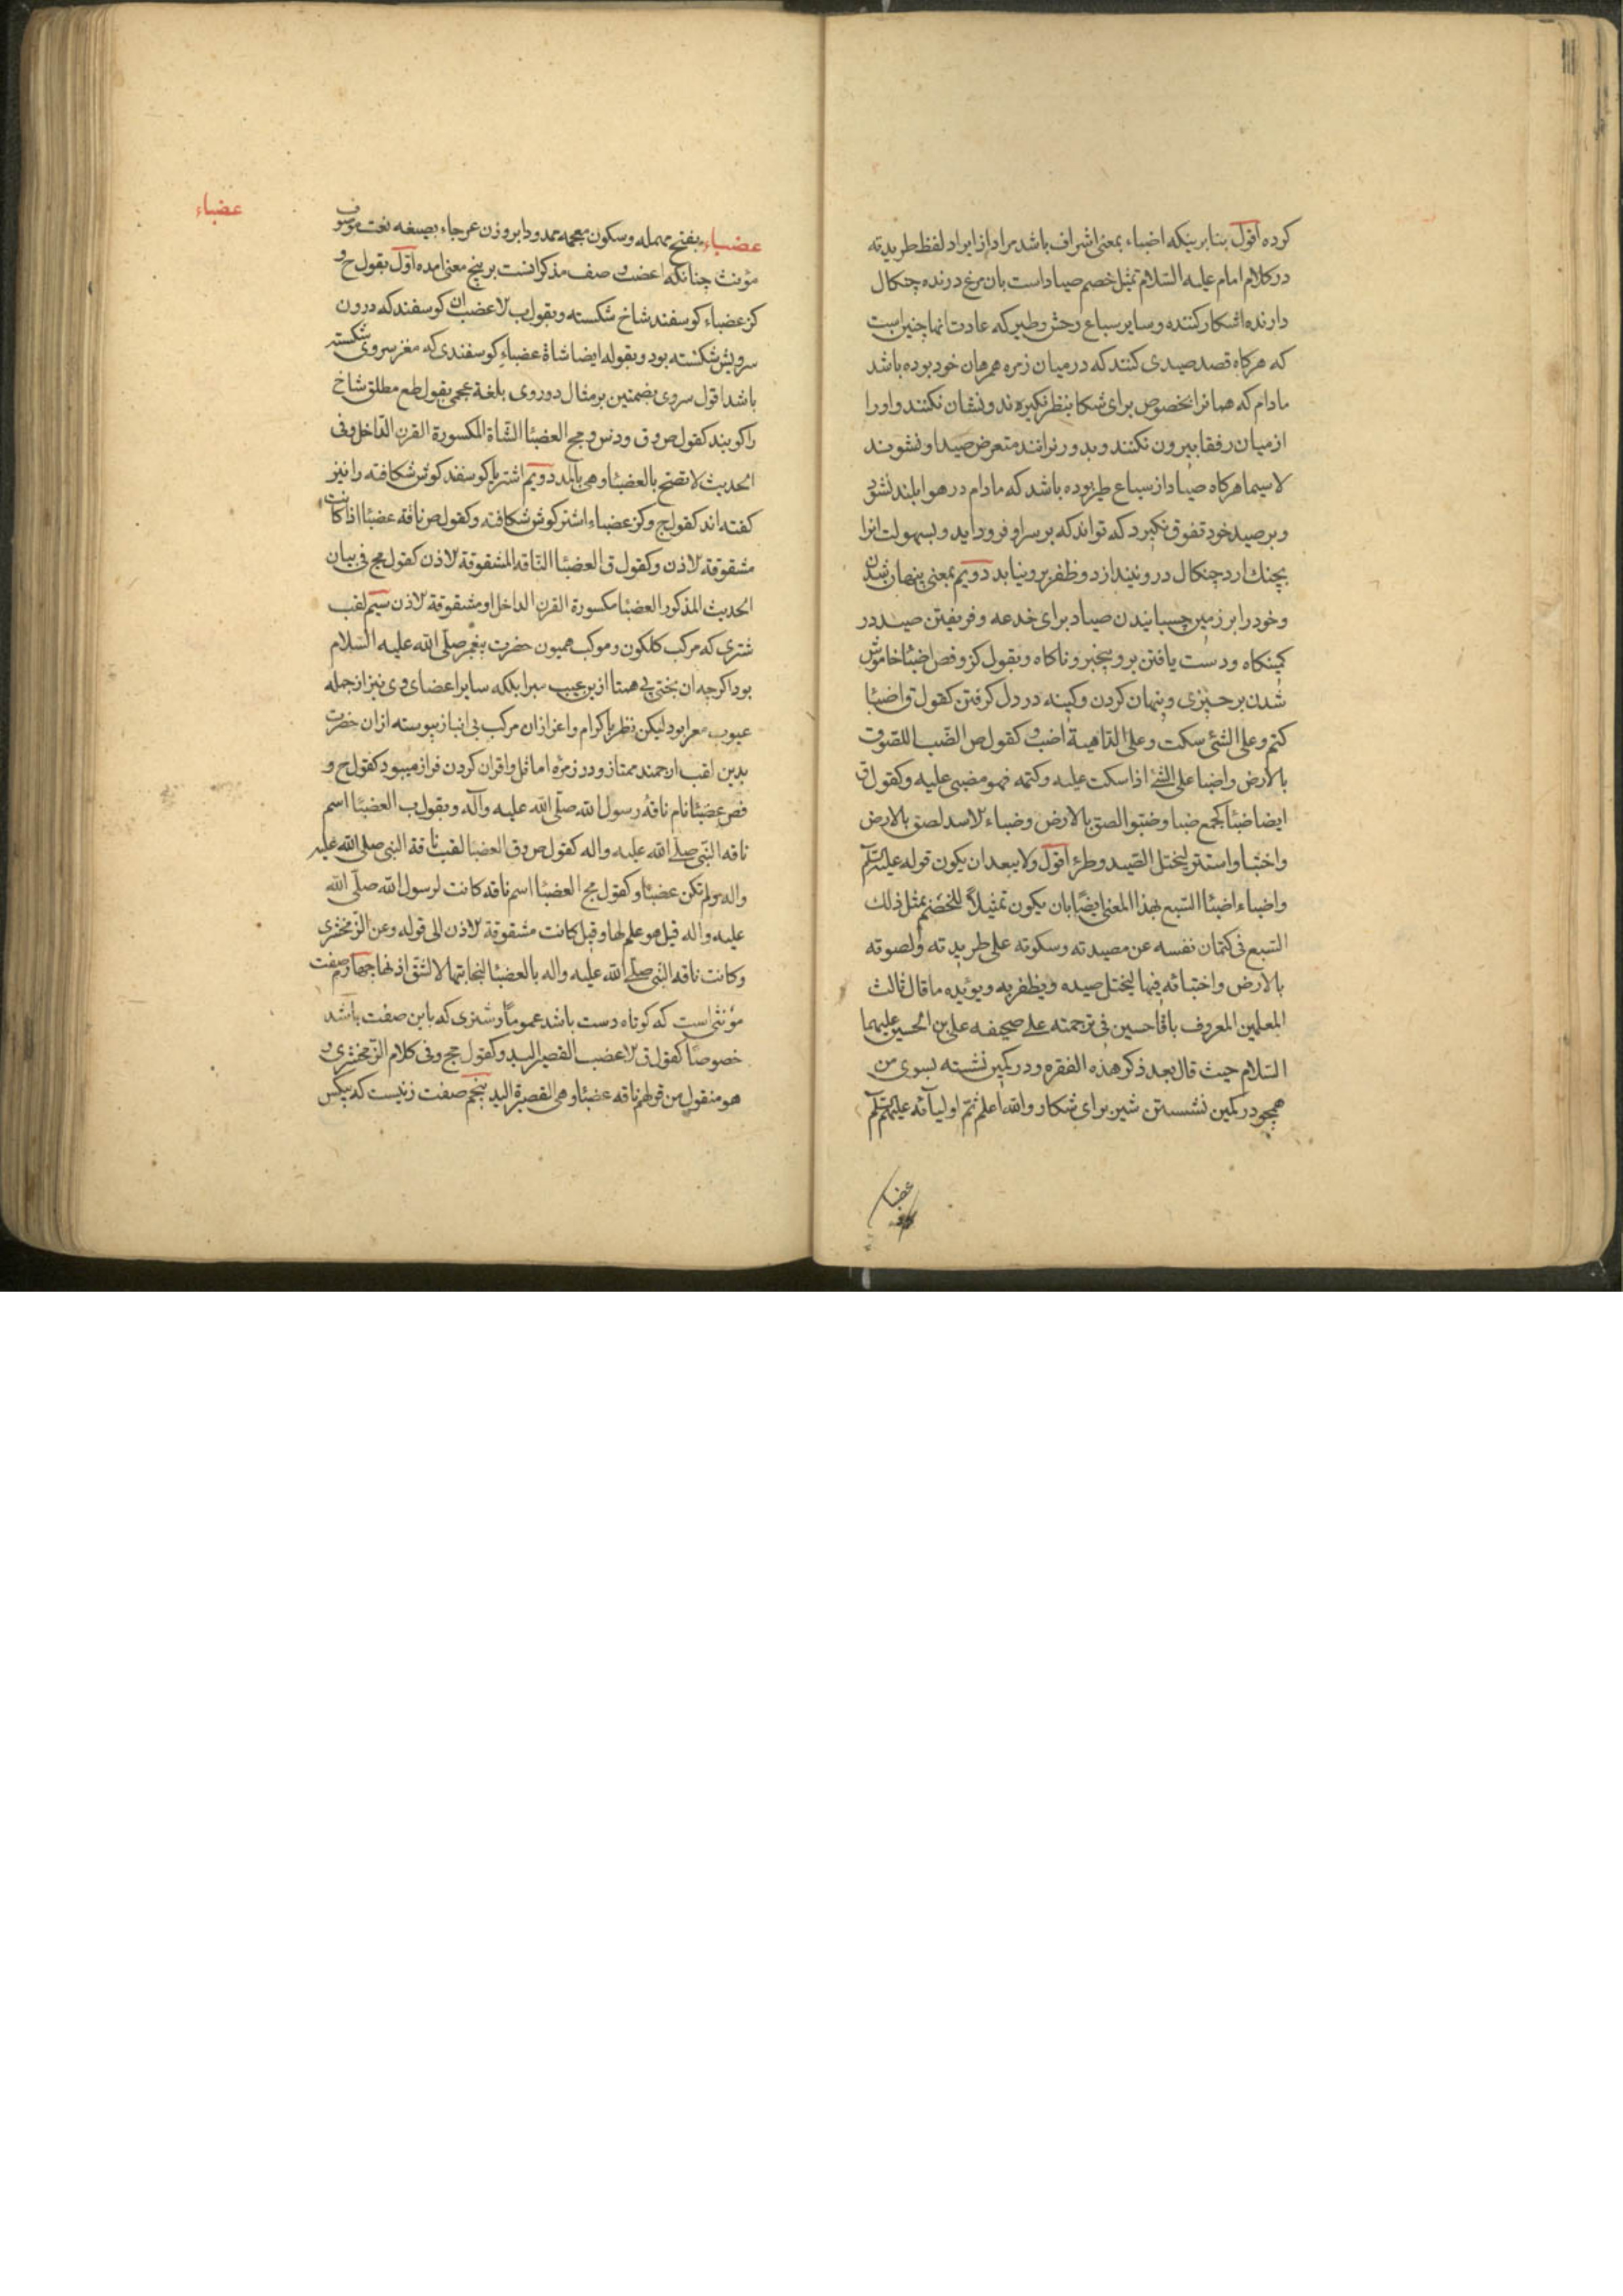 کرده اقول بنابرینکه اضباء بمعنی اشراف باشد مراد از ایراد لفظ طریدته
در کلام امام علیه السلام تمثیل خصم صیاد است بان مرغ درنده چنکال
دارنده اشکار کننده و سایر سباع وحش و طیر که عادت انها چنین است
که هرکاه قصد صیدی کنند که در میان زمره همرهان خود بوده باشد
مادام که همانرا بخصوص برای شکار بنظر نکیرند و نشان نکنند و اورا
از میان رفقا بیرون نکنند و بدور نرانند متعرض صید او نشوند
لاسیما هرکاه صیاد از سباع طیر بوده باشد که مادام در هوا بلند نشود
و بر صید خود تفوق نکیرد که تواند که بر سر او فرود آید و بسهولت انرا
بچنك ارد چنکال در و نیندازد و ظفر برو نیابد دویم بمعنی پنهان شدن
و خود را بر زمین چسبانیدن صیاد برای خدعه و فریفتن صید در
کمینکاه و دست یافتن برو بیخبر و ناکاه و بقول کز و فص اضبا خاموش
شدن بر چیزی و پنهان کردن و کینه در دل کرفتن کقول ق و اضبا
کتم و علی الشئ سکت و علی الداهیة اضب و کقول ص الضب اللصوق
بالارض و اضبا علی الشئ اذا سکت علیه و کتمه فهو مضبئ علیه و کقول ق
ایضا ضبا کجمع ضبا و ضبوا لصق بالارض و ضباء الاسد لصق بالارض
و اختبا و استتر لیختل الصید و طرء اقول و لا یبعد ان یکون قوله علیه السلام
و اضباء اضباء السبع بهذا المعنی ایضا بان یکون تمثیلا للخصم بمثل ذلك
السبع فی کتمان نفسه عن مصیدته و سکوته علی طریدته و لصوقه
بالارض و اختبائه فیها لیختل صیده و یظفر به و یویده ما قال ثالث
المعلمین المعروف باقا حسین فی ترجمته علی صحیفه علی بن الحسین علیهما
السلام حیث قال بعد ذکر هذه الفقره و در کمین نشسته بسوی من
همچو در کمین نشستن شیر برای شکار و الله اعلم ثم اولیآئه علیهم السلم
عضباء
عضباء
عضباء بفتح مهمله و سکون معجمه ممدودا بر وزن عرجاء بصیغه نعت موصوف
مؤنث چنانکه اعضب وصف مذکر انست بر پنج معنی امده اول بقول ح و
کز عضباء کوسفند شاخ شکسته و بقول ب الاعضب ان کوسفند که درون
سرویش شکسته بود و بقوله ایضا شاة عضباء کوسفندی که مغز سروی شکسته
باشد اقول سروی بضمتین بر مثال دوروی بلغة عجمی بقول طع مطلق شاخ
را کویند کقول ص و ق و دنس و مج العضباء الشاة المکسورة القرن الداخل و فی
الحدیث لا تضح بالعضباء و هی بالمد دویم اشتر یا کوسفند کوش شکافته را نیز
کفته اند کقول ح و کز عضباء اشتر کوش شکافته و کقول ص ناقه عضباء اذا کانت
مشقوقة الاذن و کقول ق العضباء الناقه المشقوقة الاذن کقول مج فی بیان
الحدیث المذکور العضباء مکسورة القرن الداخل او مشقوقة الاذن سیم لقب
شتری که مرکب کلکون و موکب همیون حضرت پیغمبر صلی الله علیه السلام
بود اکرچه ان بختی بی همتا ازین عیب مبرا بلکه سایر اعضای وی نیز از جمله
عیوب معرا بود لیکن نظر باکرام و اعزاز ان مرکب بی انباز پیوسته از ان حضرت
بدین لقب ارجمند ممتاز و در زمرۀ اماثل و اقران کردن فراز میبود کقول ح و
فص عضباء نام ناقۀ رسول الله صلی الله علیه وآله و بقول ب العضباء اسم
ناقه النبی صلی الله علیه واله کقول ص و ق العضبا لقب ناقة النبی صلی الله علیه
واله و لم تکن عضباء و کقول مج العضباء اسم ناقه کانت لرسول الله صلی الله
علیه واله قیل هو علم لها و قیل کانت مشقوقة الاذن الی قوله و عن الزمخشری
و کانت ناقه النبی صلی الله علیه واله بالعضباء لنجابتها لا لشق اذنها چهارم صفت
مؤنثی است که کوتاه دست باشد عموما و شتری که باین صفت باشد
خصوصا کقول ق الاعضب القصیر الید و کقول مج و فی کلام الزمخشری و
هو منقول من قولهم ناقه عضباء و هی القصیرة الید پنجم صفت زنیست که بیکس